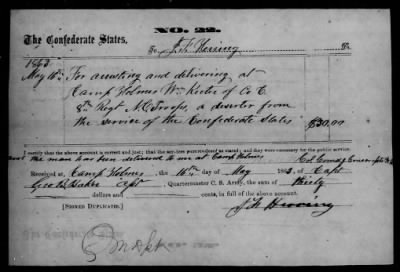 NO. 22.
The Confederate States,
To J. F. Herring Dr.
1863
May 16th For arresting and delivering at
Camp Holmes Wm Keeter of Co E
8th Regt N.C. Troops, a deserter from
the service of the Confederate States $30.00
I certify that the above account is correct and just; that the services were rendered as stated; and they were necessary for the public service.
the man has been delivered to me at Camp Holmes
Received at Camp Holmes the 16th day of May 1863, of Capt
Geo B. Baker Quartermaster C. S. Army, the sum of thirty
dollars and cents, in full of the above account.
[SIGNED DUPLICATES.] J. F. Herring